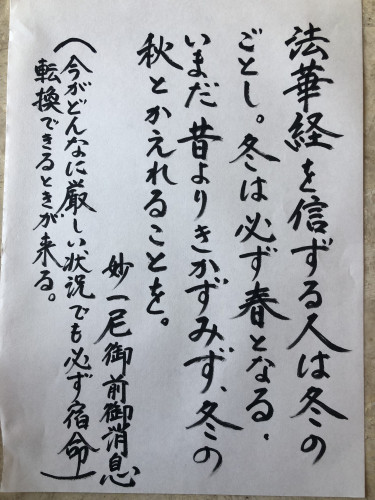 法華経を信ずる人は冬の
ごとし。冬は必ず春となる.
いまだ昔よりきかずみず、冬の
秋とかえれることを。
妙一尼御前御消息
（今がどんなに厳しい状況でも必ず宿命
転換できるときが来る。）